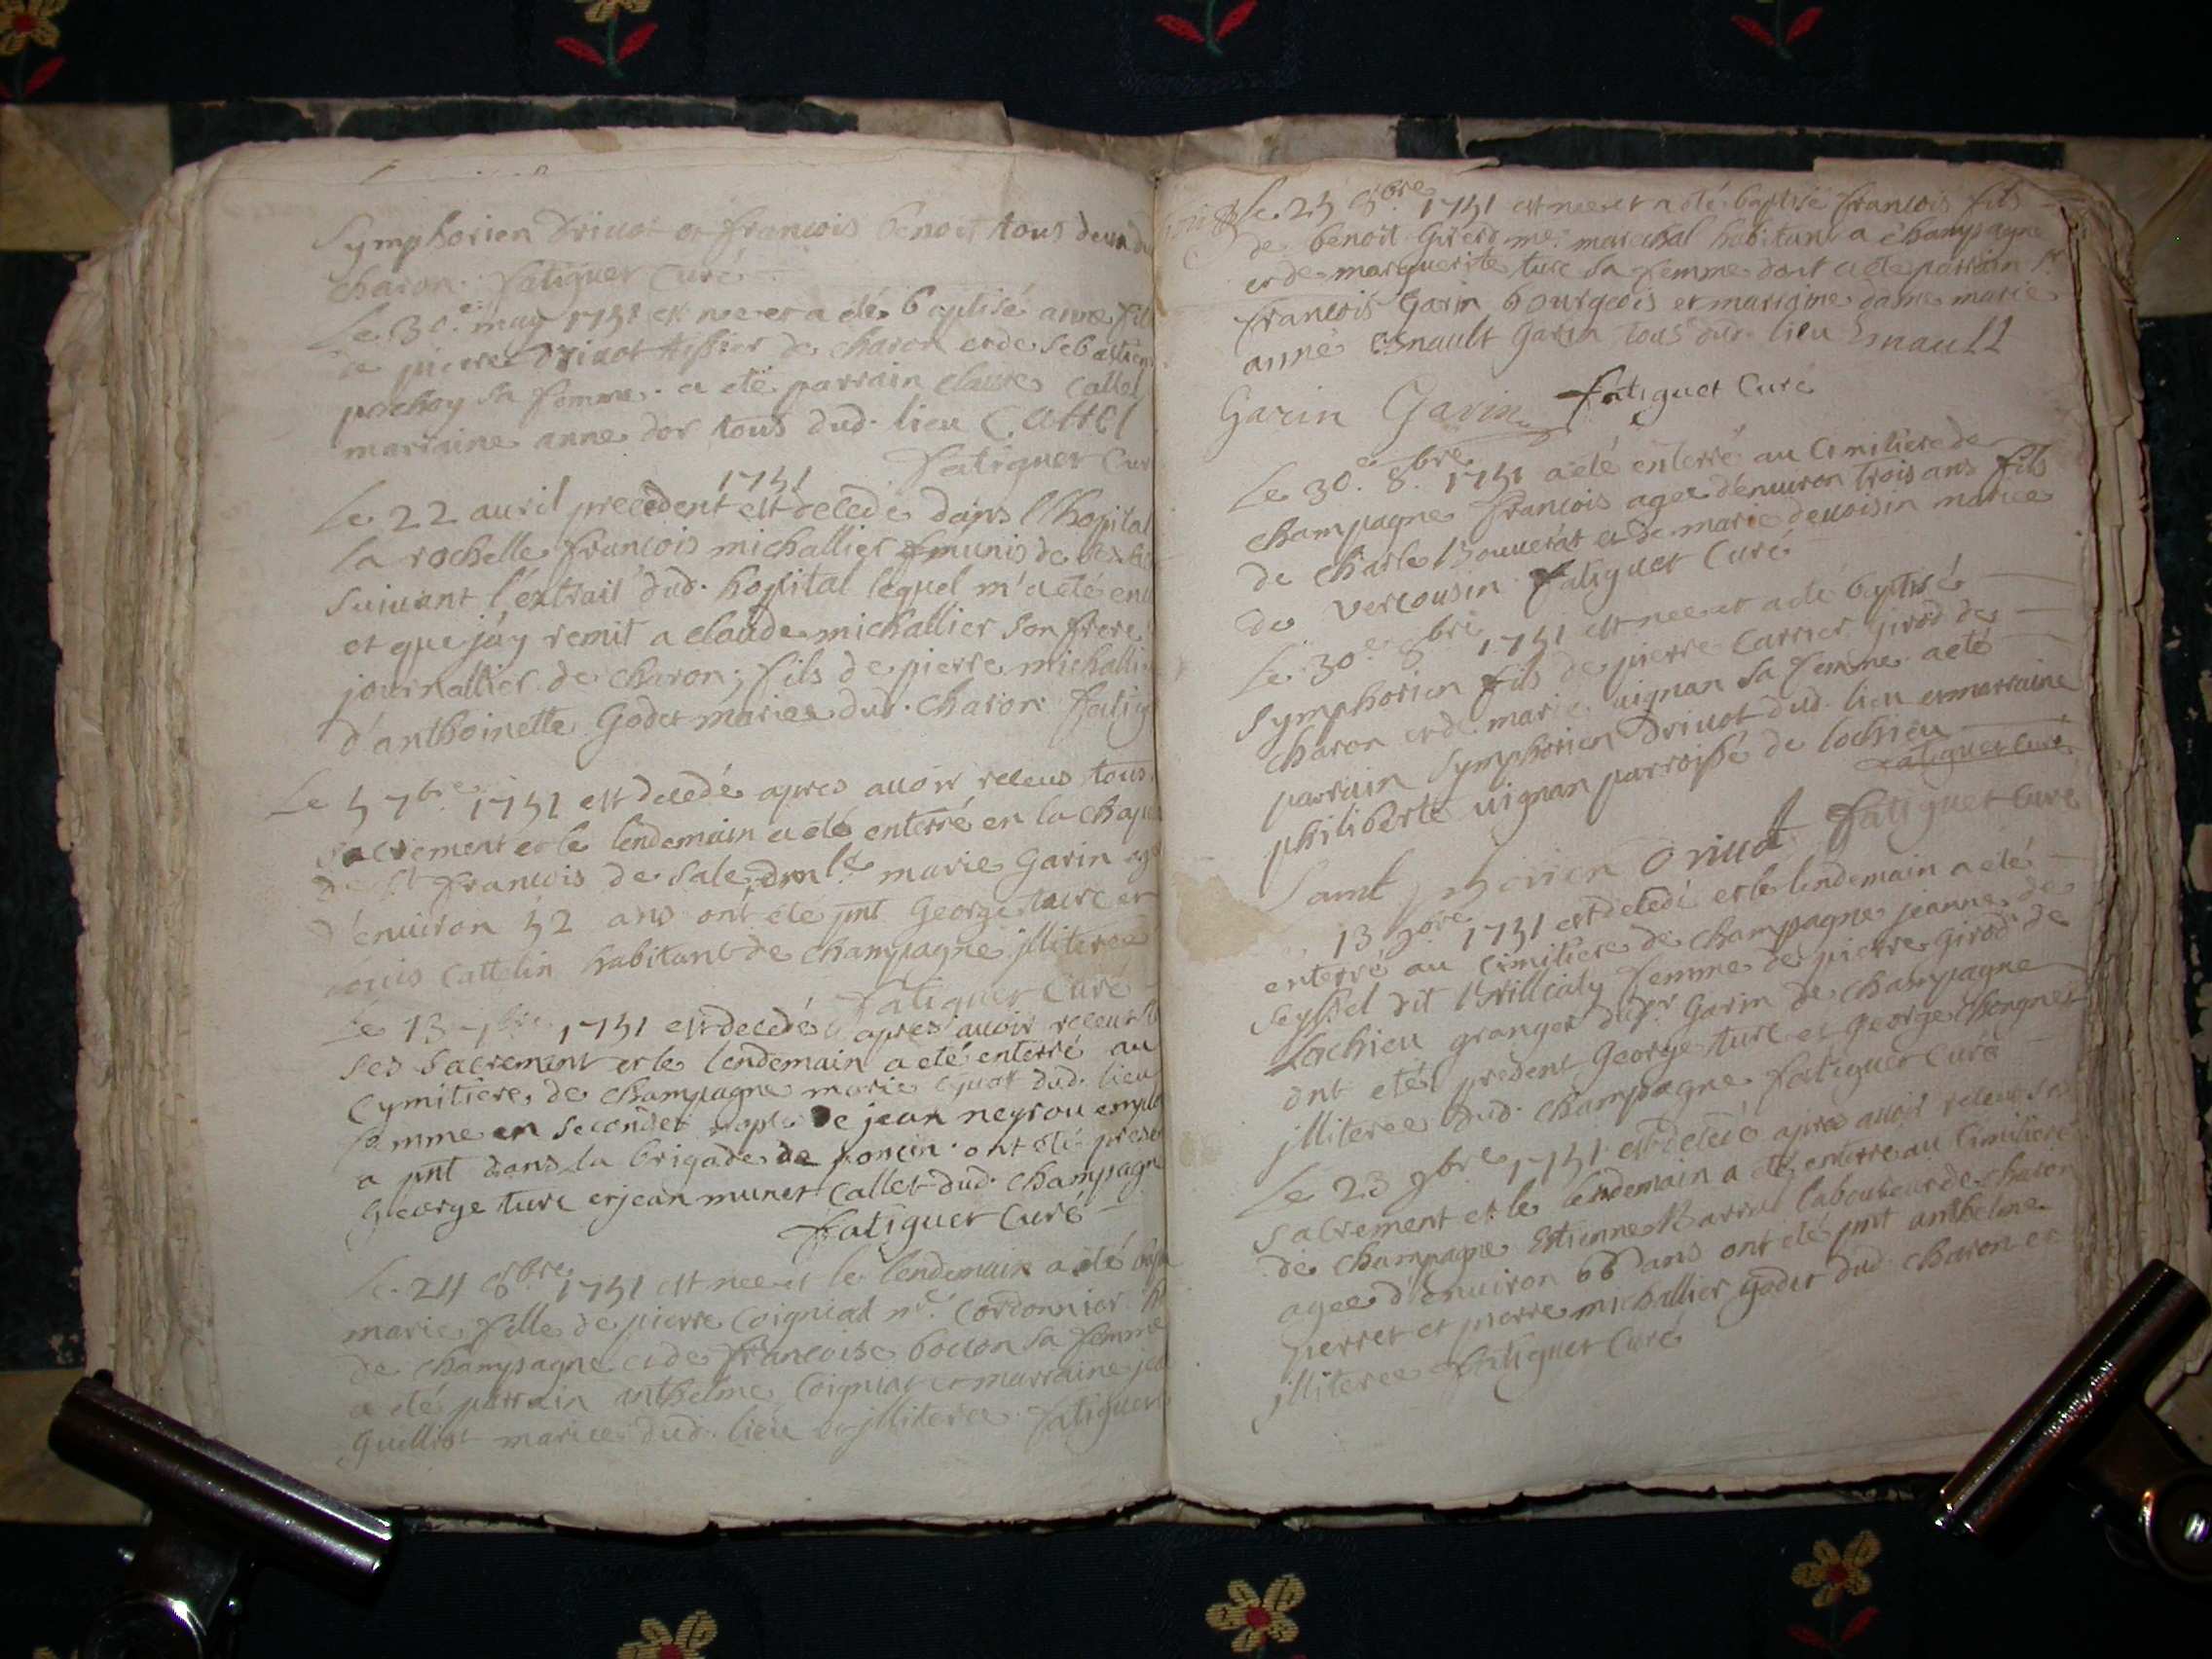 Symphorien Driuot et francois benoit tous deux du
charon. fatiguet Curé
Le 30.e may 1751 est nee et a été baptisé anne fil
de pierre Driuot tissier de charon et de sebastien
pochoy sa femme. a eté parrain claure Callet
marraine anne dor tous dud. lieu C. Cattet
fatiguet Cur
1751
Le 22 auril precedent est decedé dans l'hopital
la rochelle francois michallier munis de
suiuant l'extrait dud. hopital lequel m'a eté en
et que j'ay remit a claude michallier son frere
journallier de charon; fils de pierre michalli
d'anthoinette Godet mariee dud. charon fatig
Le 5 7bre 1751 est decedé apres auoir receus tous
sacrement et le lendemain a eté enterré en la chape
de st francois de sale dmlle marie Garin ag
d'enuiron 52 ans ont eté pnt George turc et
louis Cattelin habitant de champagne jlliteree
fatiguet Curé
Le 13 7bre 1751 est decedé apres auoir receut
ses sacrement et le lendemain a eté enterré au
Cymitiere de champagne marie dud. lieu
femme en secondes nopse de jean neyrou emplo
a pnt dans la brigade de poncin. ont eté prese
George turc et jean munet Callet dud. champagne
fatiguet Curé
Le 24 8bre 1751 est nee et le lendemain a eté bap
marie fille de pierre Coigniat me. Cordonnier
de champagne et de francoise bouton sa femme
a eté parrain anthelme Coigniat et marraine je
Guilliot mariee dud. lieu jlliteree fatiguet
Le 25 8bre 1751 est nee et a été baptisé francois fils
de benoit Girerd me. marechal habitant a champagne
et de marguerite turc sa femme dont a eté parrain sr
francois Garin bourgeois et marraine dame marie
anne Esnault Garin tous dud. lieu Enault
Garin Garin fatiguet Curé
Le 30.e 8.bre 1751 a eté enterré au Cimitiere de
champagne francois agee d'enuiron trois ans fils
de charle Bouuerat et de marie deuoisin mariee
de vercousin fatiguet Curé
Le 30.e 8bre 1751 est nee et a eté baptisé
symphorien fils de pierre Carrier girod de
charon et de marie uignan sa femme a eté
parrain symphorien Driuot dud. lieu et marraine
philiberte uignan parroisse de lochieu
fatiguet Curé
Samt phorien Driuot fatiguet Curé
13 9bre 1751 est decedé et le lendemain a eté
enterré au Cimitiere de champagne jeanne de
seyssel dit femme de pierre girod de
Lochieu granger du sr Garin de champagne
ont eté present George turc et George Chongnet
jlliteree dud. champagne fatiguet Curé
Le 23 9bre 1751 est decedé apres auoir receut
sacrement et le lendemain a eté enterré au Cimitiere
de champagne Estienne laboureur de charon
agee d'enuiron 66 ans ont eté pnt anthelme
perret et pierre michallier godet dud. charon et
jlliteree fatiguet Curé